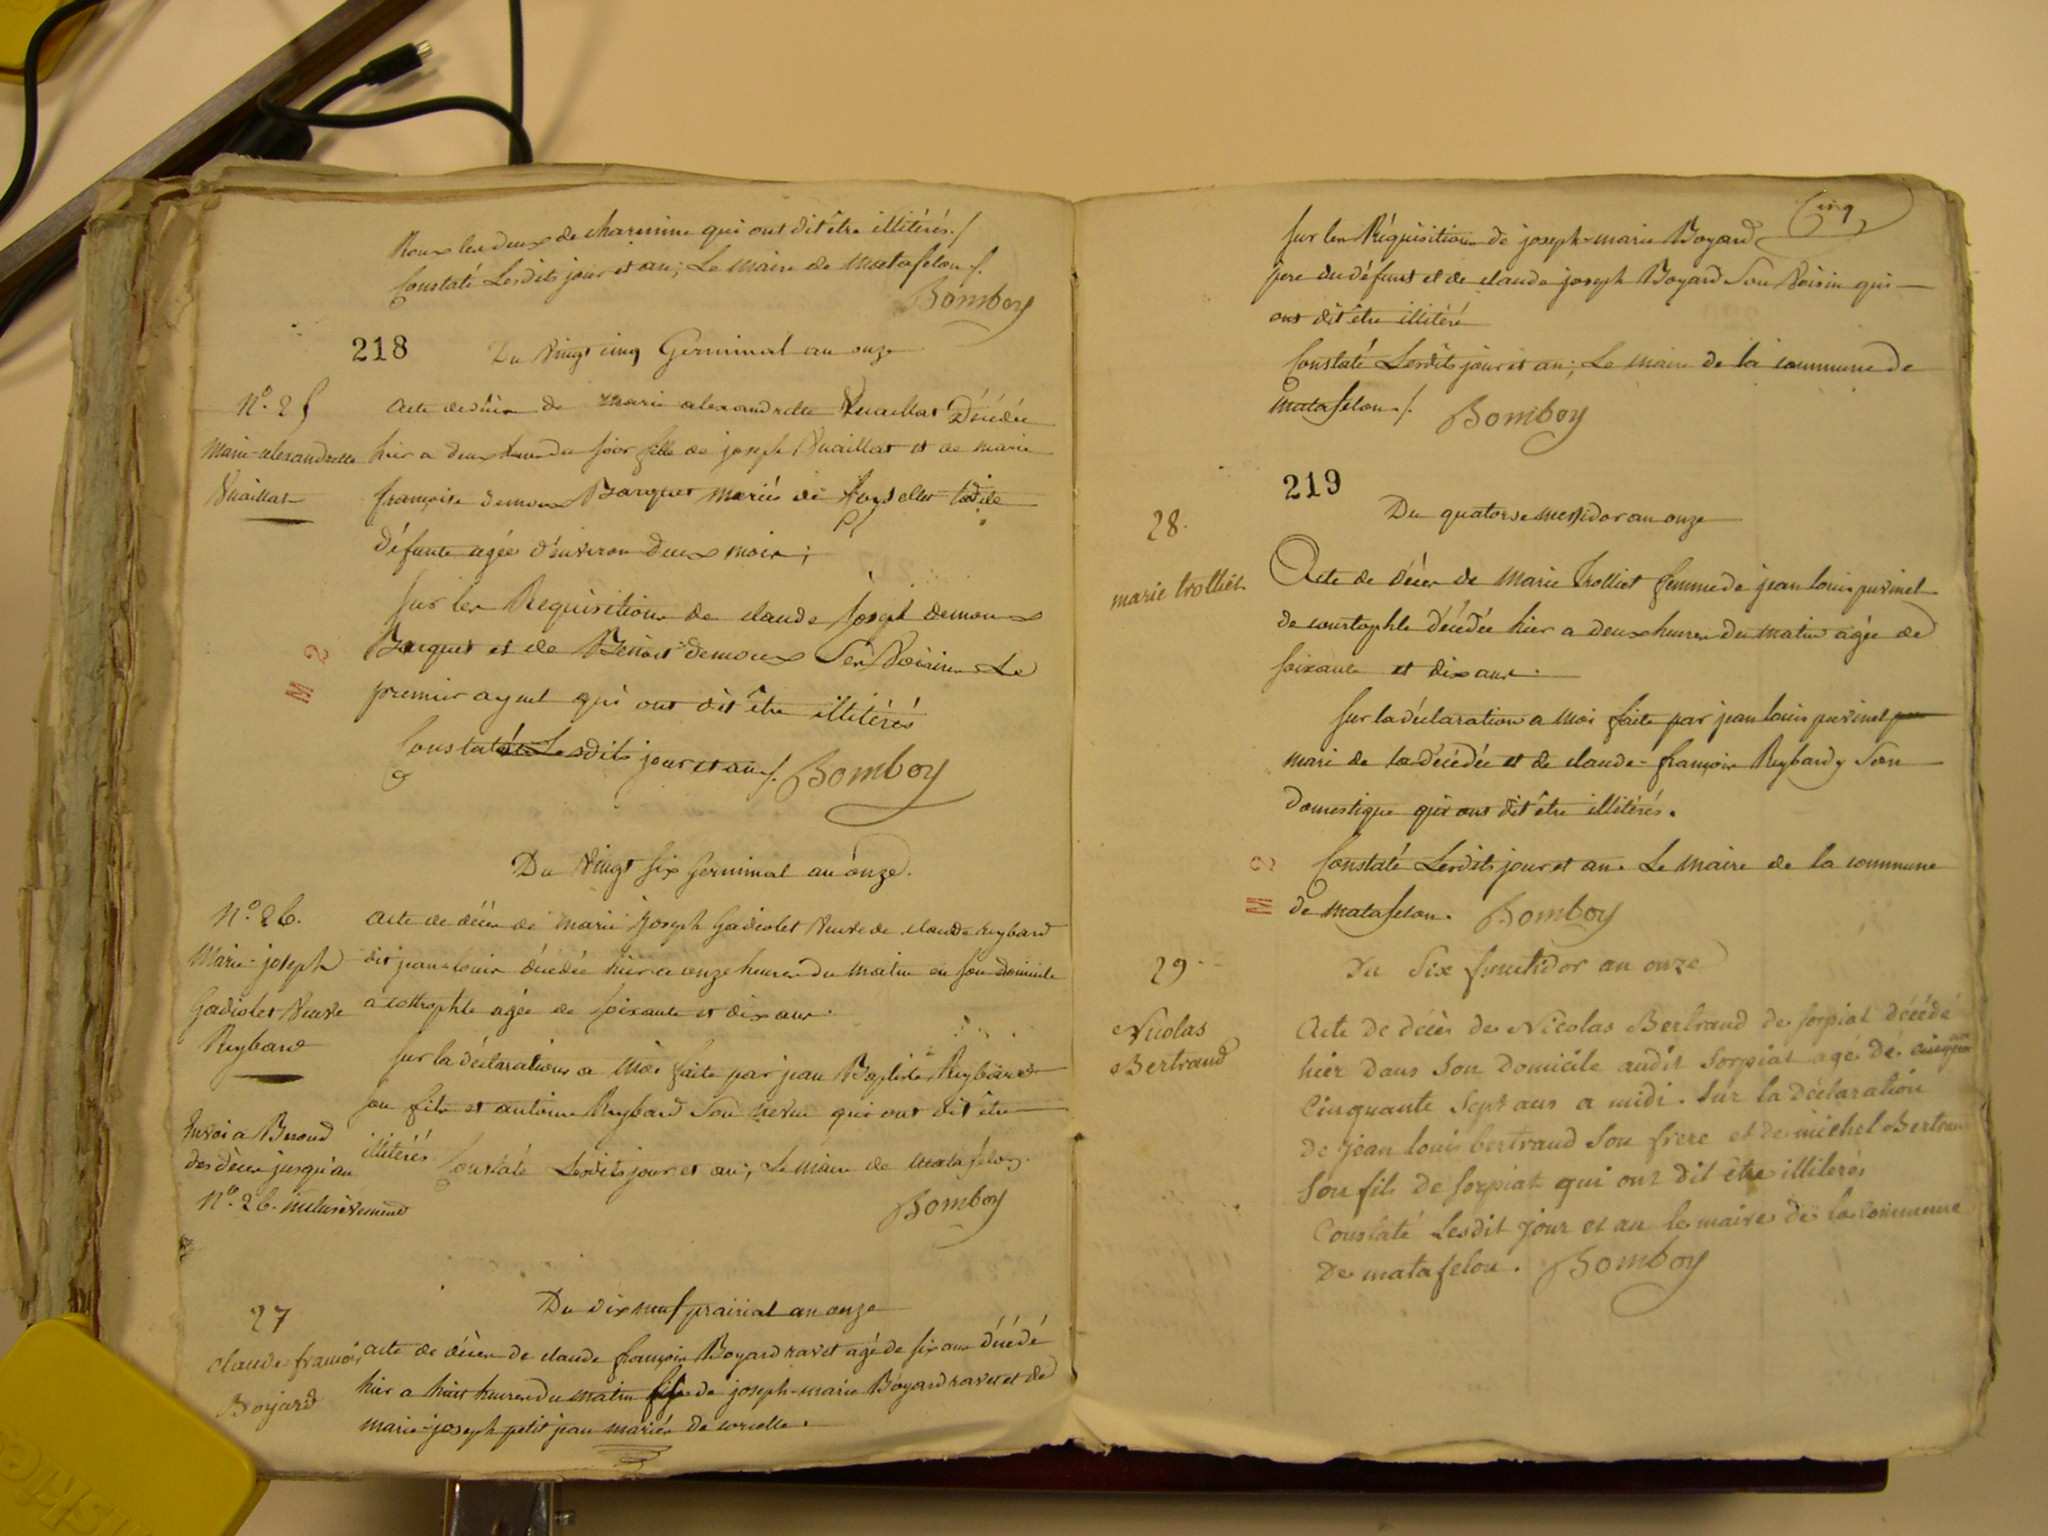 Roux les deux de charmine qui ont dit être illitérés./
Constaté Lesdits jour et an; Le maire de matafelon./.
Bomboy
218
Du Vingt cinq Germinal an onze
N.º 25
Marie-alexandrette
Vuaillat
acte de décès de marie alexandrette Vuaillat Décédée
hier a deux heures du soir fille de joseph Vuaillat et de marie
françoise demoux Barquet mariés de ladite
défunte agée d'environ deux mois;
Sur les Requisitions de claude joseph demoux
Barquet et de Benoit demoux Ses Voisins Le
premier ayeul qui ont dit être illitérés
Constaté Lesdits jour et an/. Bomboy
M 2
Du Vingt Six Germinal an onze.
N.º 26.
Marie-joseph
Gadiolet Veuve
Reybard
Envoi a
des décès jusqu'au
N.º 26. inclusivement
acte de décès de marie joseph Gadiolet Veuve de claude reybard
dit jean-louis décédée hier a onze heures du matin en son domicile
a cottrophle agée de soixante et dix ans.
Sur la déclaration a moi faite par jean Baptiste Reybard
son fils et antoine Reybard Son neveu qui ont dit être
illitérés
Constaté Lesdits jour et an; Le maire de matafelon.
Bomboy
27
claude françois
Boyard
Du dix neuf prairial an onze
acte de décès de claude françois Boyard ravet agé de six ans décédé
hier a huit heures du matin fils de joseph-marie Boyard ravet et de
marie-joseph petit jean mariés de corcelle.
Cinq
Sur les Réquisitions de joseph-marie Boyard
père du défunt et de claude joseph Boyard Son Voisin qui
ont dit être illitéré
Constaté Lesdits jour et an; Le maire de la commune de
matafelon./. Bomboy
219
Du quatorse messidor an onze
28.
marie trolliet
Acte de décès de Marie Trolliet femme de jean louis puvinel
de courtophle décédée hier a deux heures du matin agée de
soixante et dix ans.
Sur la déclaration a moi faite par jean louis puvinel
mari de la décédée et de claude-françois Reybard Son
domestique qui ont dit être illitérés.
Constaté Lesdits jour et an Le Maire de la commune
de matafelon. Bomboy
M 2
29
Nicolas
Bertrand
Du Six fructidor an onze
Acte de décès de Nicolas Bertrand de sorpiat décédé
hier dans Son domicile audit Sorpiat agé de
Cinquante Sept ans a midi. Sur la déclaration
de jean louis bertrand Son frere et de michel Bertrand
Son fils de sorpiat qui ont dit être illiterés
Constaté Lesdit jour et an le maire de la commune
De matafelon. Bomboy